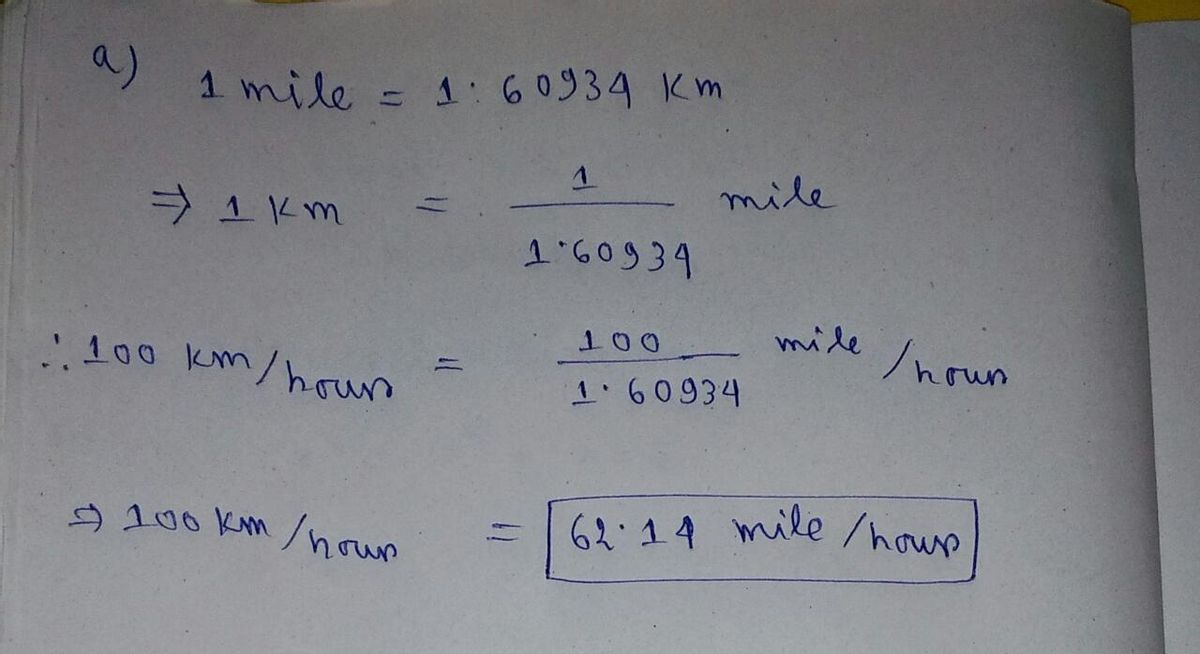 a) 1 mile = 1.60934 Km
⇒ 1 Km = 1 / 1.60934 mile
∴ 100 km/hour = 100 / 1.60934 mile/hour
⇒ 100 km/hour = 62.14 mile/hour